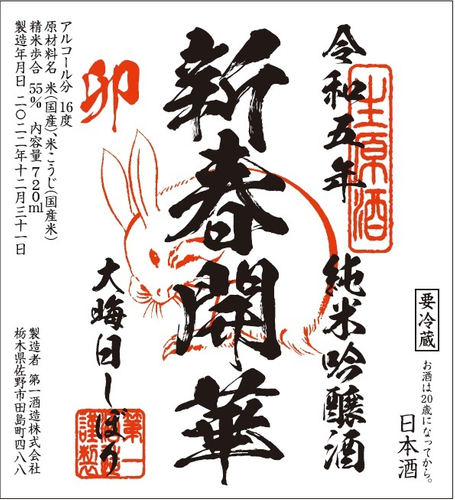 令和五年
生原酒
純米吟醸酒
要冷蔵
お酒は20歳になってから。
日本酒
新春開華
卯
大晦日しぼり
第一
謹製
アルコール分 16度
原材料名 米(国産)、米こうじ(国産米)
精米歩合 55% 内容量720ml
製造年月日 二〇二二年十二月三十一日
製造者 第一酒造株式会社
栃木県佐野市田島町四八八